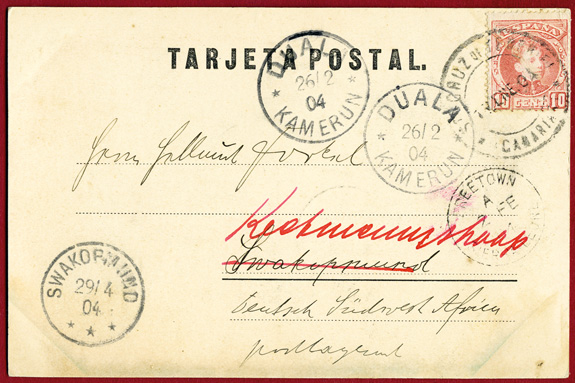 TARJETA POSTAL.
ESPAÑA
10 CENTS 10
DUALA
26/2
04
KAMERUN
DUALA
26/2
04
KAMERUN
CRUZ DE
CANARIAS
FREETOWN
A
FE
Herrn Hellmut
Keetmannshoop
Swakopmund
Deutsch Südwest Afrika
postlagernd
SWAKOPMUND
29/4
04